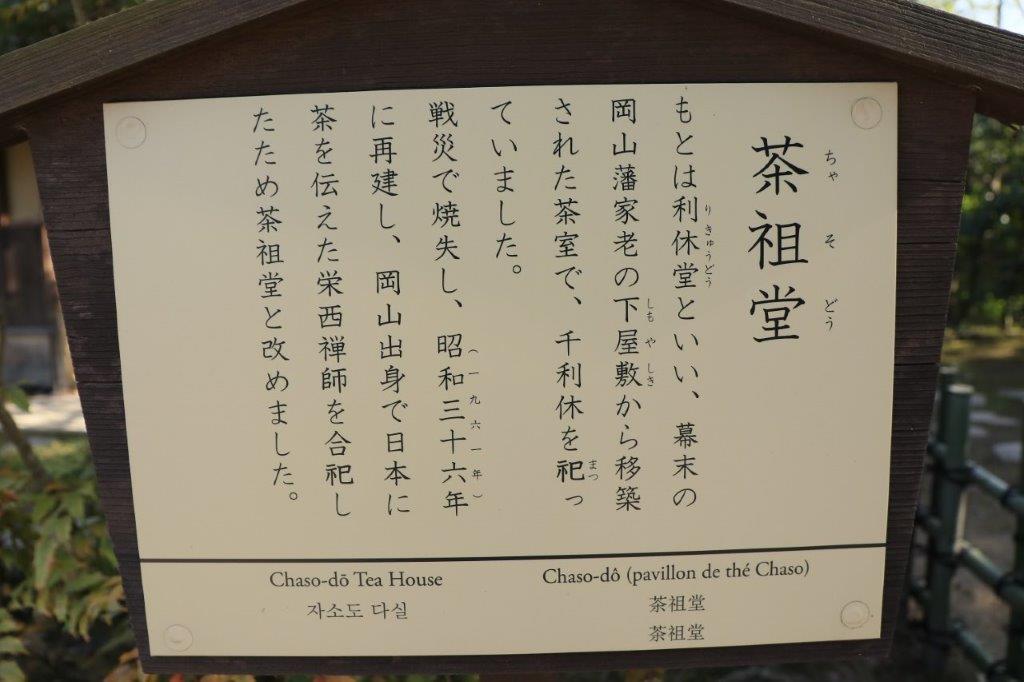 茶祖堂
ちゃそどう
もとは利休堂といい、幕末の
りきゅうどう
岡山藩家老の下屋敷から移築
しもやしき
された茶室で、千利休を祀っ
まつ
ていました。
戦災で焼失し、昭和三十六年
（一九六一年）
に再建し、岡山出身で日本に
茶を伝えた栄西禅師を合祀し
たため茶祖堂と改めました。
Chaso-dō Tea House
자소도 다실
Chaso-dô (pavillon de thé Chaso)
茶祖堂
茶祖堂